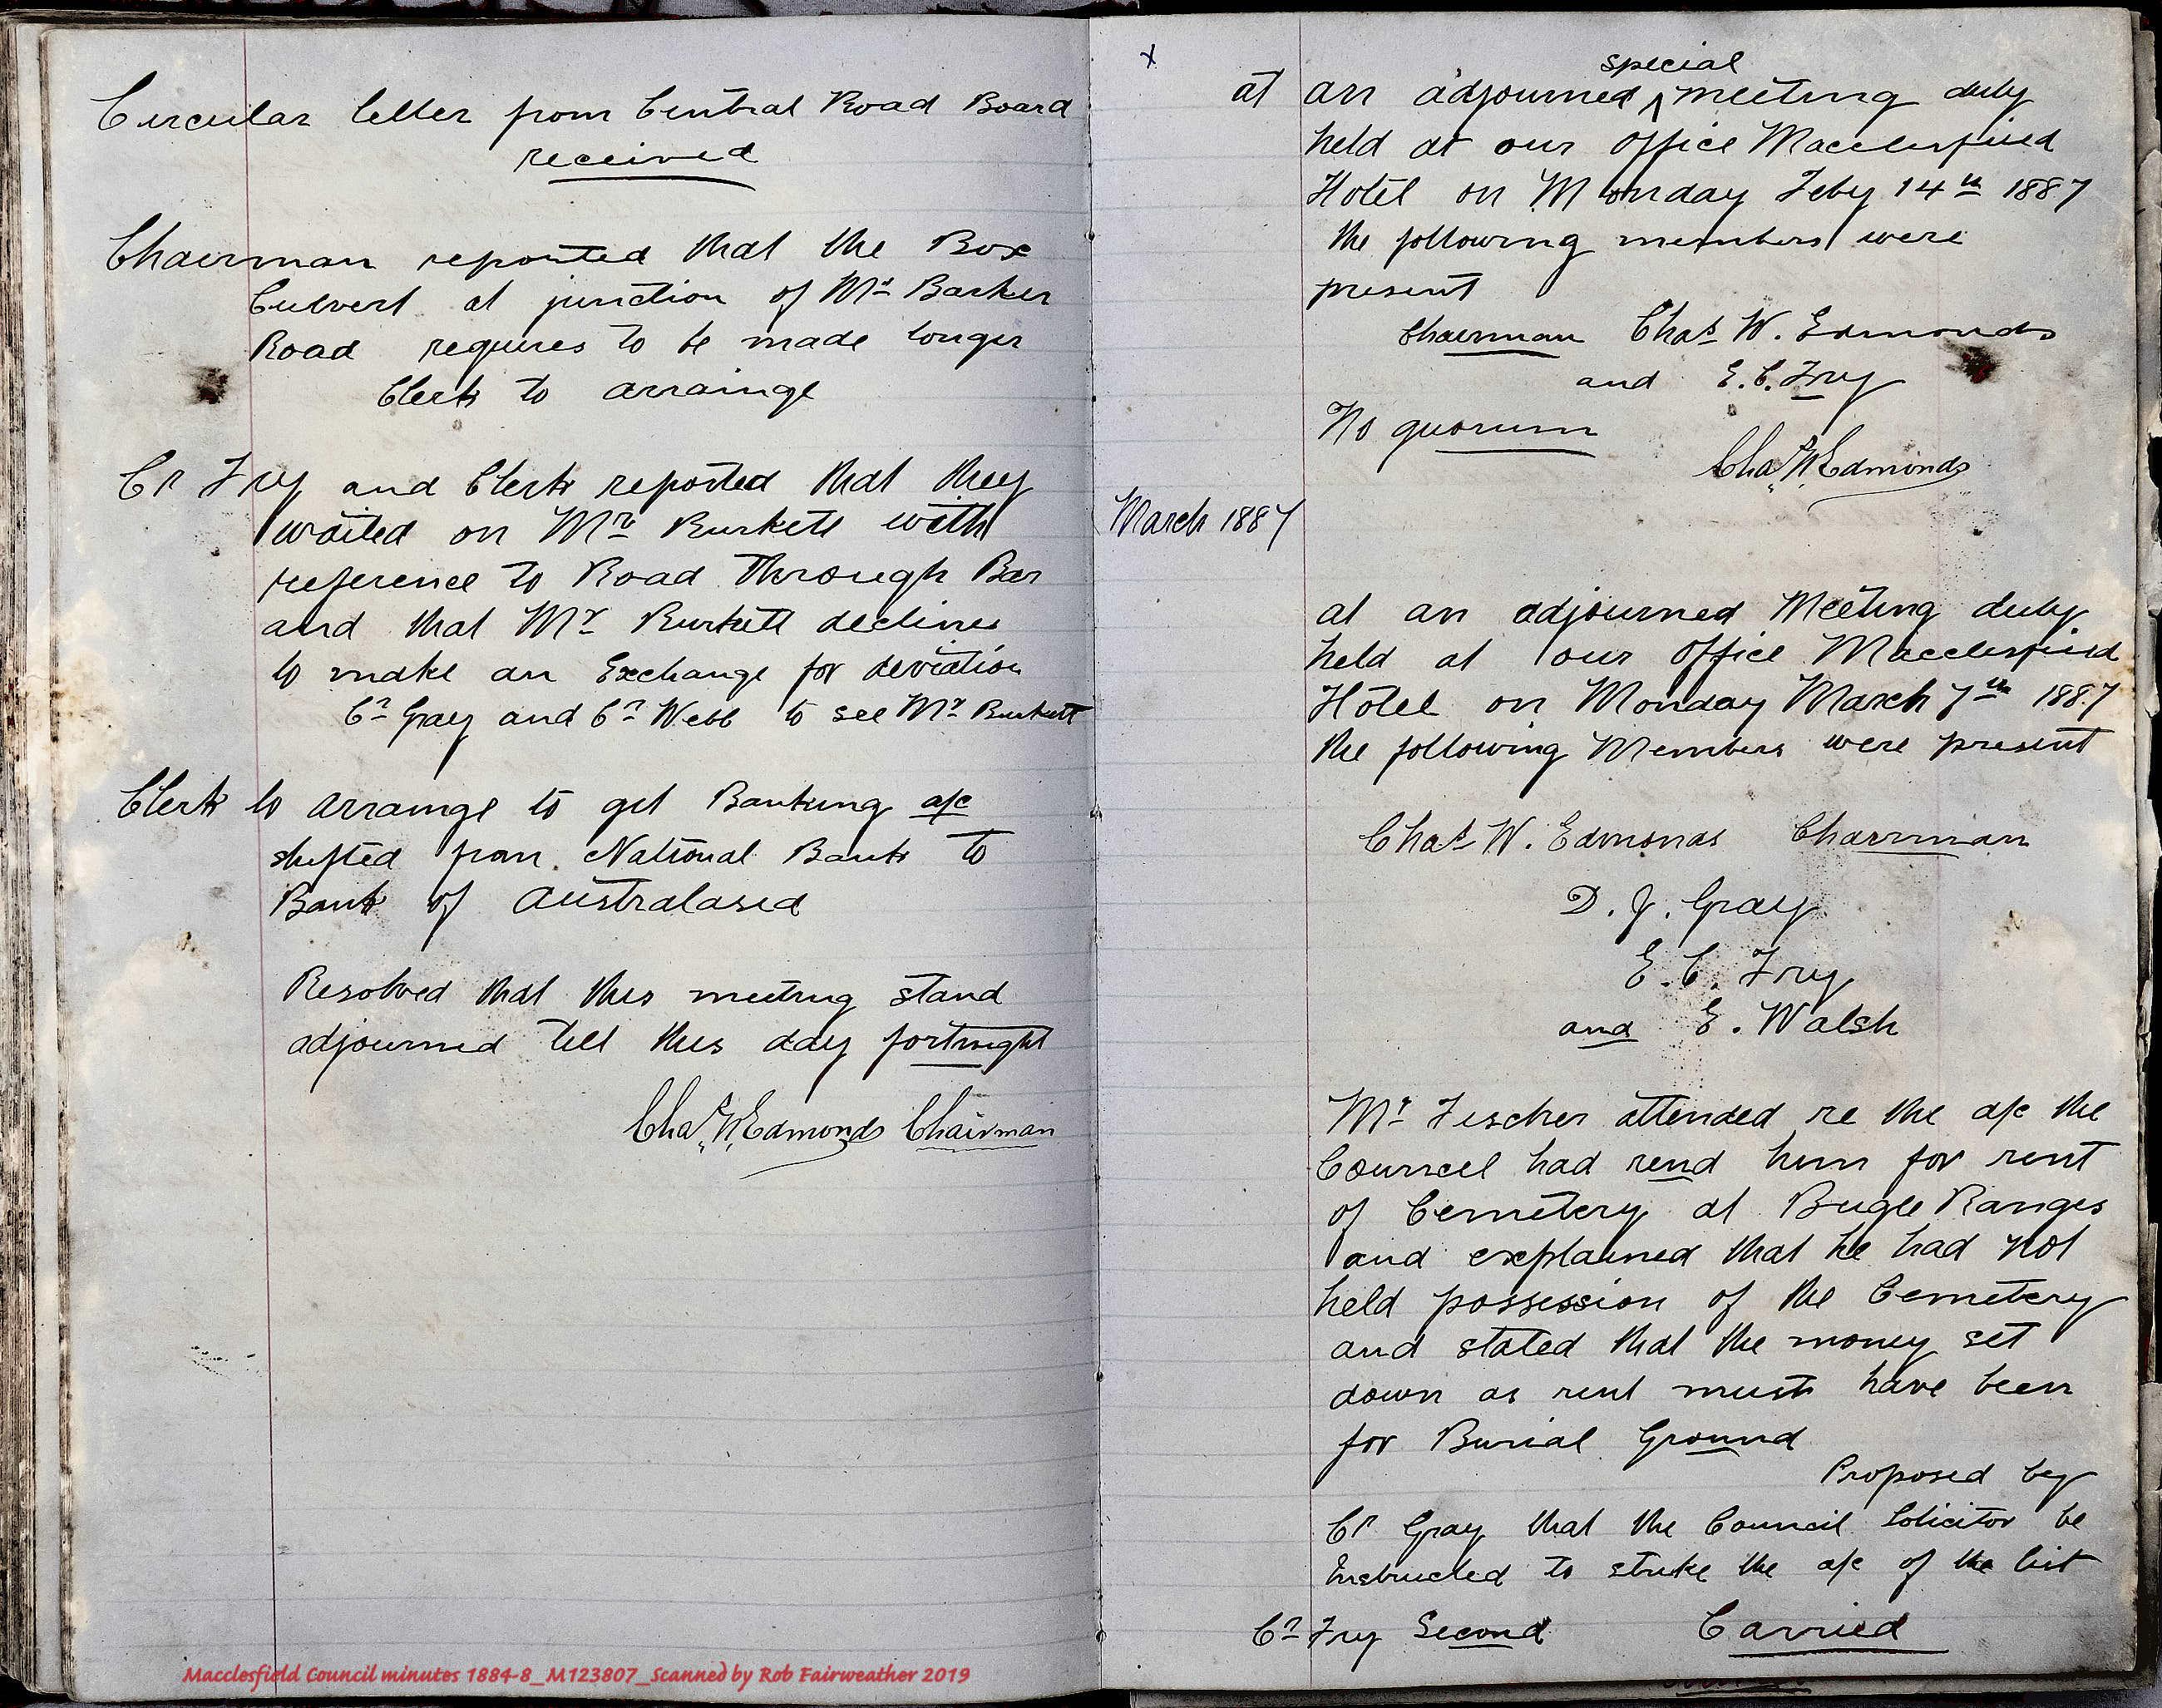 Circular letter from Central Road Board
received
Chairman reported that the Box
Culvert at junction of Mr Barker
Road requires to be made longer
Clerk to arrainge
Cr Fry and Clerk reported that they
waited on Mr Burkett with
reference to Road Through Bar
and that Mr Burkett declines
to make an Exchange for deviation
Cr Gray and Cr Webb to see Mr Burkett
Clerk to arrainge to get Banking a/c
shifted from National Bank to
Bank of Australasia
Resolved that this meeting stand
adjourned till this day fortnight
Chas W. Edmonds Chairman
x
special
at an adjourned ^ meeting duly
held at our Office Macclesfield
Hotel on Monday Feby 14th 1887
the following members were
present
Chairman Chas W. Edmonds
and E. C. Fry
No quorum
Chas W. Edmonds
March 1887
at an adjourned Meeting duly
held at our Office Macclesfield
Hotel on Monday March 7th 1887
the following Members were present
Chas W. Edmonds Chairman
D. J. Gray
E. C. Fry
and E. Walsh
Mr Fischer attended re the a/c the
Councel had rend him for rent
of Cemetery at Bugle Ranges
and explained that he had not
held possession of the Cemetery
and stated that the money set
down as rent must have been
for Burial Ground
Proposed by
Cr Gray that the Council Solicitor be
Instructed to strike the a/c of the list
Cr Fry Second Carried
Macclesfield Council minutes 1884-8_M123807_Scanned by Rob Fairweather 2019